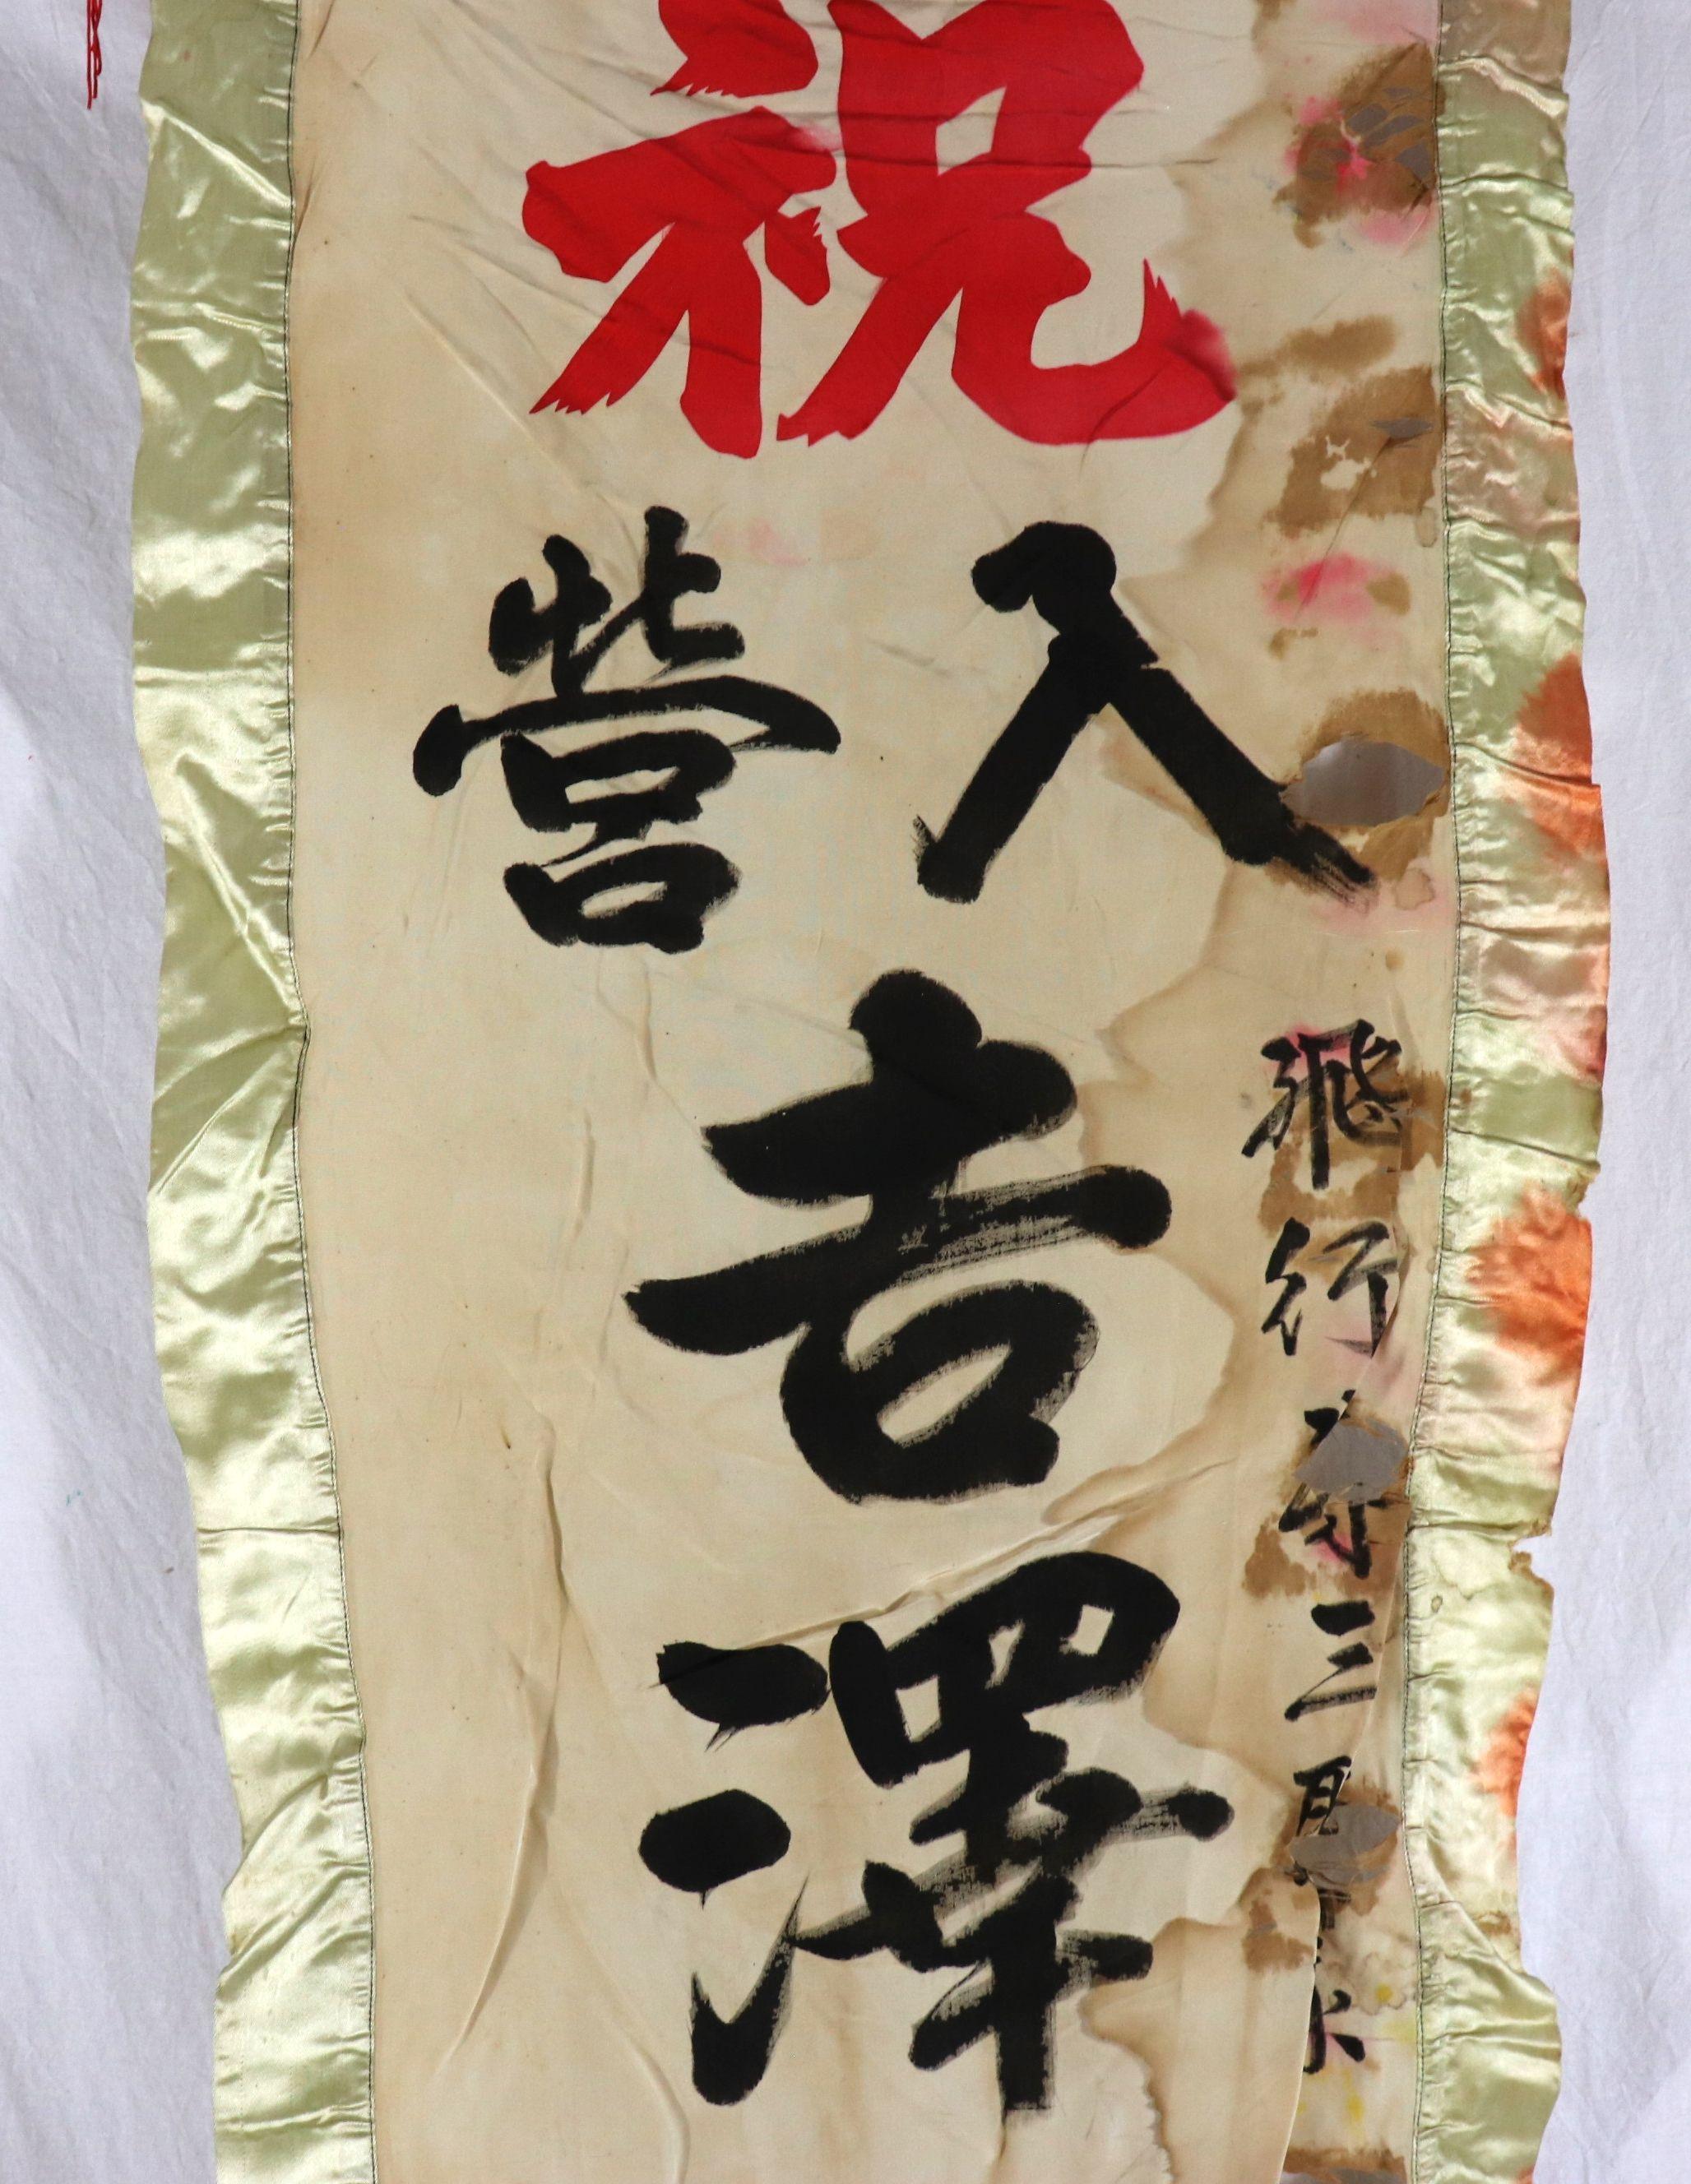 祝
入營
吉澤
飛行
三